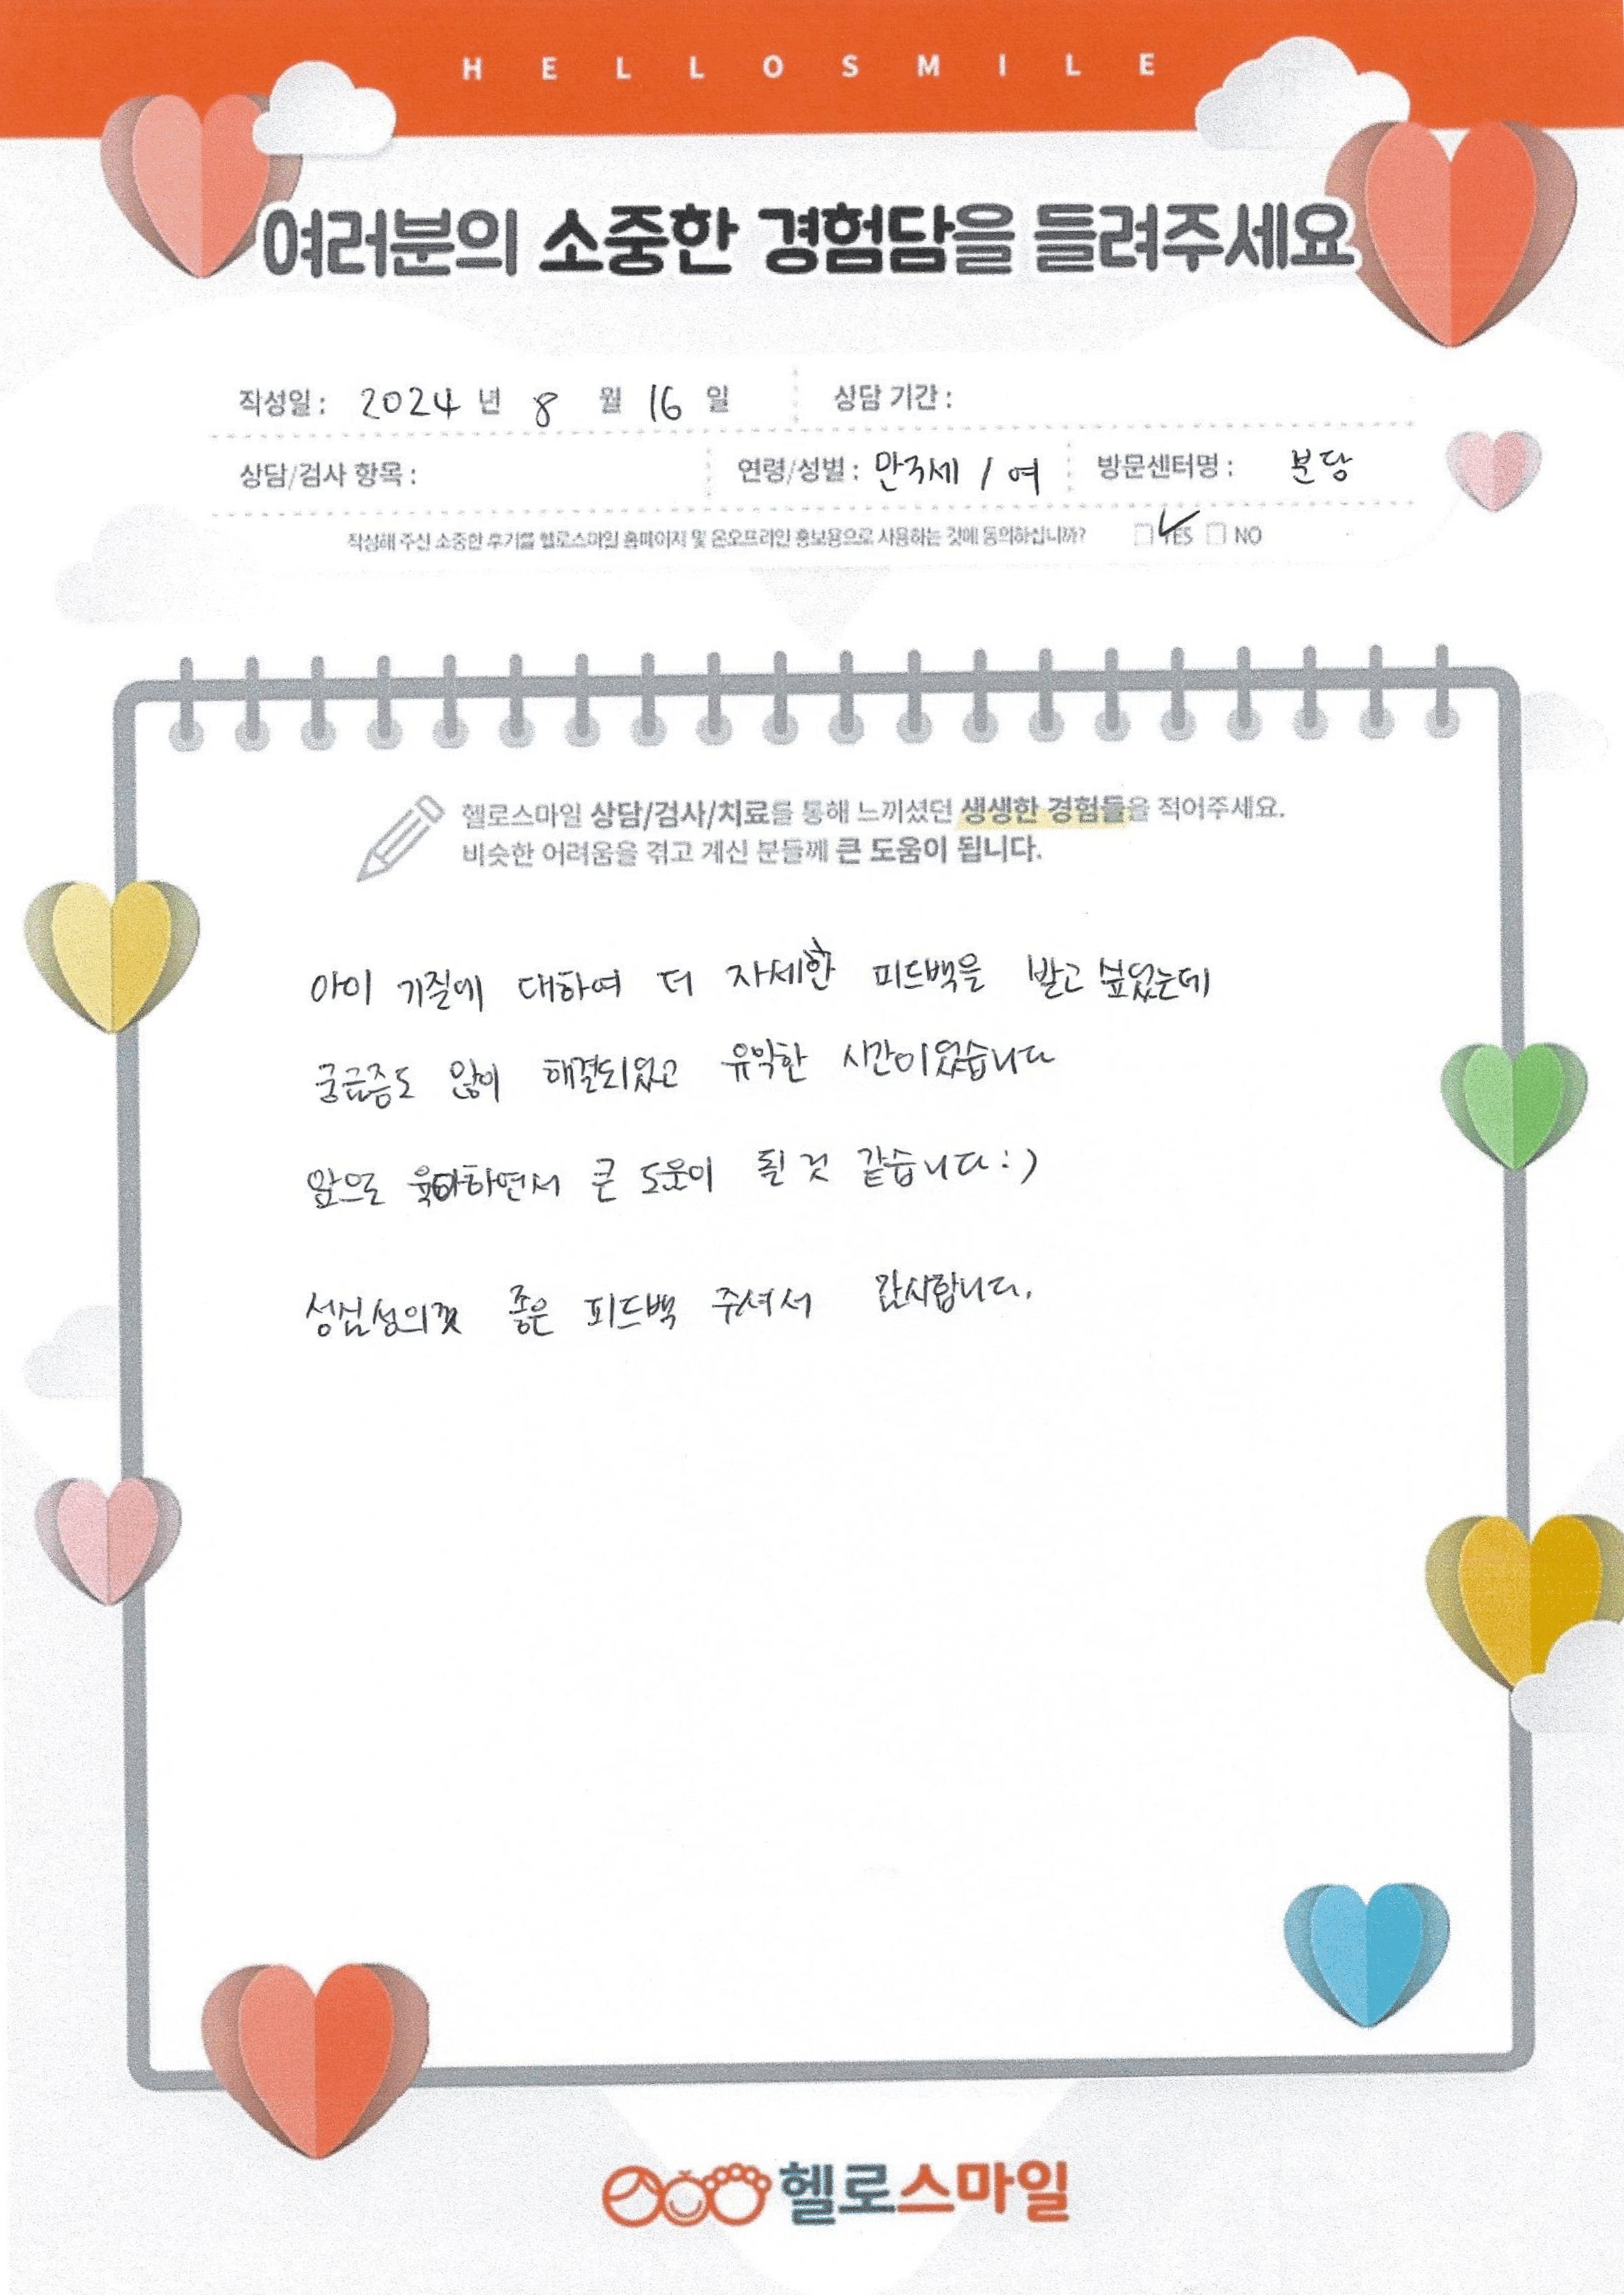 HELLOSMILE
여러분의 소중한 경험담을 들려주세요
작성일 : 2024 년 8 월 16 일 상담 기간 :
상담/검사 항목 : 연령/성별 : 만3세 / 여 방문센터명 : 분당
작성해 주신 소중한 후기를 헬로스마일 홈페이지 및 온오프라인 홍보용으로 사용하는 것에 동의하십니까? YES NO
헬로스마일 상담/검사/치료를 통해 느끼셨던 생생한 경험들을 적어주세요.
비슷한 어려움을 겪고 계신 분들께 큰 도움이 됩니다.
아이 기질에 대하여 더 자세한 피드백을 받고 싶었는데
궁금증도 많이 해결되었고 유익한 시간이었습니다
앞으로 육아하면서 큰 도움이 될 것 같습니다 : )
성심성의껏 좋은 피드백 주셔서 감사합니다.
헬로스마일